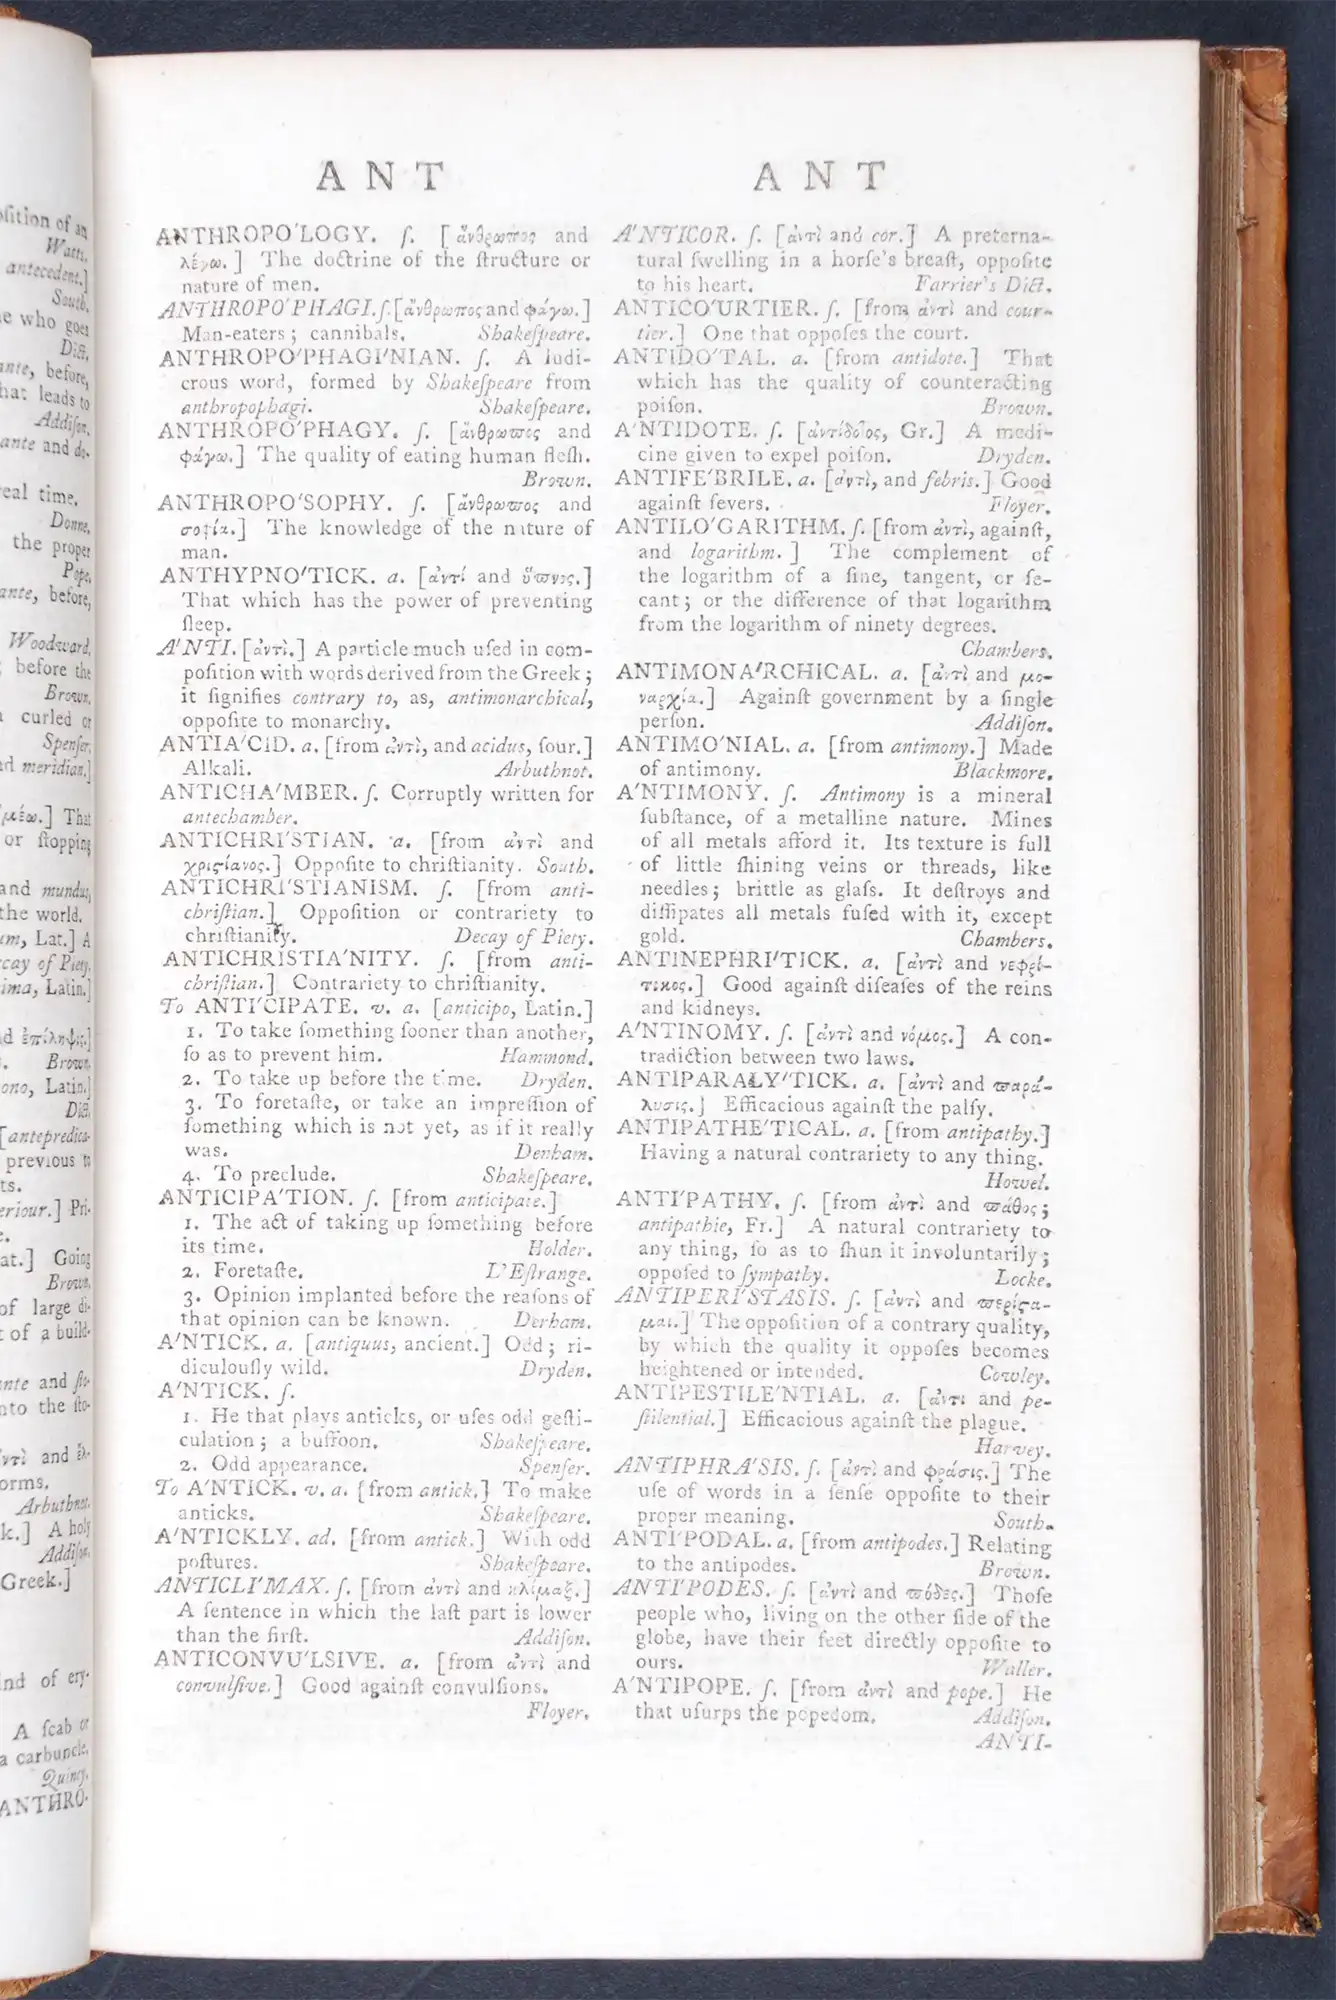 osition of an
Watts.
antecedent.]
South.
e who goes
Dict.
ante, before,
that leads to
Addison.
ante and do-
real time.
Donne.
the proper
Pope.
ante, before,
Woodward.
; before the
Brown.
curled or
Spenser.
nd meridian.]
μέω.] That
or stopping
and mundus,
the world.
um, Lat.] A
cay of Piety.
ima, Latin.]
ἐπίληψις.]
Brown.
ono, Latin.]
Dict.
[antepredica-
previous to
ts.
eriour.] Pri-
at.] Going
Brown.
of large di-
t of a build-
nte and sto-
nto the sto-
and ἕλ-
orms.
Arbuthnot.
k.] A holy
Addison.
Greek.]
nd of ery-
A ſcab or
a carbuncle.
Quincy.
ANTHRO-
ANT
ANTHROPO'LOGY. ſ. [ἄνθρωπος and
λέγω.] The doctrine of the ſtructure or
nature of men.
ANTHROPO'PHAGI. ſ. [ἄνθρωπος and φάγω.]
Man-eaters; cannibals. Shakeſpeare.
ANTHROPO'PHAGI'NIAN. ſ. A ludi-
crous word, formed by Shakeſpeare from
anthropophagi. Shakeſpeare.
ANTHROPO'PHAGY. ſ. [ἄνθρωπος and
φάγω.] The quality of eating human fleſh.
Brown.
ANTHROPO'SOPHY. ſ. [ἄνθρωπος and
σοφία.] The knowledge of the nature of
man.
ANTHYPNO'TICK. a. [ἀντί and ὕπνος.]
That which has the power of preventing
ſleep.
A'NTI. [ἀντὶ.] A particle much uſed in com-
poſition with words derived from the Greek;
it ſignifies contrary to, as, antimonarchical,
oppoſite to monarchy.
ANTIA'CID. a. [from ἀντὶ, and acidus, ſour.]
Alkali. Arbuthnot.
ANTICHA'MBER. ſ. Corruptly written for
antechamber.
ANTICHRI'STIAN. a. [from ἀντὶ and
χριϛιανος.] Oppoſite to chriſtianity. South.
ANTICHRI'STIANISM. ſ. [from anti-
chriſtian.] Oppoſition or contrariety to
chriſtianity. Decay of Piety.
ANTICHRISTIA'NITY. ſ. [from anti-
chriſtian.] Contrariety to chriſtianity.
To ANTI'CIPATE. v. a. [anticipo, Latin.]
1. To take ſomething ſooner than another,
ſo as to prevent him. Hammond.
2. To take up before the time. Dryden.
3. To foretaſte, or take an impreſſion of
ſomething which is not yet, as if it really
was. Denham.
4. To preclude. Shakeſpeare.
ANTICIPA'TION. ſ. [from anticipate.]
1. The act of taking up ſomething before
its time. Holder.
2. Foretaſte. L'Eſtrange.
3. Opinion implanted before the reaſons of
that opinion can be known. Derham.
A'NTICK. a. [antiquus, ancient.] Odd; ri-
diculouſly wild. Dryden.
A'NTICK. ſ.
1. He that plays anticks, or uſes odd geſti-
culation; a buffoon. Shakeſpeare.
2. Odd appearance. Spenſer.
To A'NTICK. v. a. [from antick.] To make
anticks. Shakeſpeare.
A'NTICKLY. ad. [from antick.] With odd
poſtures. Shakeſpeare.
ANTICLI'MAX. ſ. [from ἀντὶ and κλίμαξ.]
A ſentence in which the laſt part is lower
than the firſt. Addiſon.
ANTICONVU'LSIVE. a. [from ἀντὶ and
convulſive.] Good againſt convulſions.
Floyer.
ANT
A'NTICOR. ſ. [ἀντὶ and cor.] A preterna-
tural ſwelling in a horſe's breaſt, oppoſite
to his heart. Farrier's Dict.
ANTICO'URTIER. ſ. [from ἀντὶ and cour-
tier.] One that oppoſes the court.
ANTIDO'TAL. a. [from antidote.] That
which has the quality of counteracting
poiſon. Brown.
A'NTIDOTE. ſ. [ἀντίδοτος, Gr.] A medi-
cine given to expel poiſon. Dryden.
ANTIFE'BRILE. a. [ἀντὶ, and febris.] Good
againſt fevers. Floyer.
ANTILO'GARITHM. ſ. [from ἀντὶ, againſt,
and logarithm.] The complement of
the logarithm of a ſine, tangent, or ſe-
cant; or the difference of that logarithm
from the logarithm of ninety degrees.
Chambers.
ANTIMONA'RCHICAL. a. [ἀντὶ and μο-
ναρχία.] Againſt government by a ſingle
perſon. Addiſon.
ANTIMO'NIAL. a. [from antimony.] Made
of antimony. Blackmore.
A'NTIMONY. ſ. Antimony is a mineral
ſubſtance, of a metalline nature. Mines
of all metals afford it. Its texture is full
of little ſhining veins or threads, like
needles; brittle as glaſs. It deſtroys and
diſſipates all metals fuſed with it, except
gold. Chambers.
ANTINEPHRI'TICK. a. [ἀντὶ and νεφρί-
τικος.] Good againſt diſeaſes of the reins
and kidneys.
A'NTINOMY. ſ. [ἀντὶ and νόμος.] A con-
tradiction between two laws.
ANTIPARALY'TICK. a. [ἀντὶ and παρά-
λυσις.] Efficacious againſt the palſy.
ANTIPATHE'TICAL. a. [from antipathy.]
Having a natural contrariety to any thing.
Howel.
ANTI'PATHY. ſ. [from ἀντὶ and πάθος;
antipathie, Fr.] A natural contrariety to
any thing, ſo as to ſhun it involuntarily;
oppoſed to ſympathy. Locke.
ANTIPERI'STASIS. ſ. [ἀντὶ and περίϛα-
μαι.] The oppoſition of a contrary quality,
by which the quality it oppoſes becomes
heightened or intended. Cowley.
ANTIPESTILE'NTIAL. a. [ἀντι and pe-
ſtilential.] Efficacious againſt the plague.
Harvey.
ANTIPHRA'SIS. ſ. [ἀντὶ and φράσις.] The
uſe of words in a ſenſe oppoſite to their
proper meaning. South.
ANTI'PODAL. a. [from antipodes.] Relating
to the antipodes. Brown.
ANTI'PODES. ſ. [ἀντὶ and πόδες.] Thoſe
people who, living on the other ſide of the
globe, have their feet directly oppoſite to
ours. Waller.
A'NTIPOPE. ſ. [from ἀντὶ and pope.] He
that uſurps the popedom. Addiſon.
ANTI-